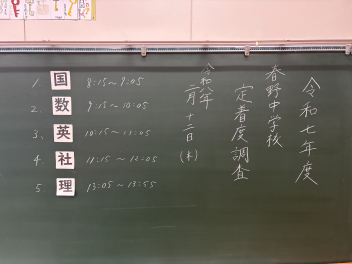 令和七年度
春野中学校
定着度調査
令和八年
一月十二日(木)
1. 国 8:15～9:05
2. 数 9:15～10:05
3. 英 10:15～11:05
4. 社 11:15～12:05
5. 理 13:05～13:55